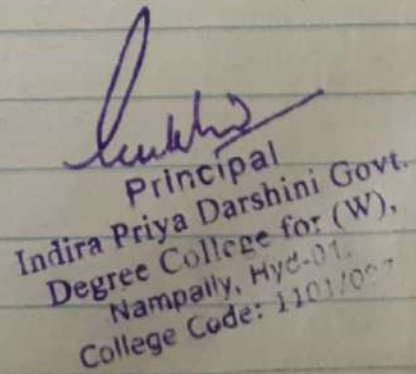 Principal
Indira Priya Darshini Govt.
Degree College for (W),
Nampally, Hyd-01.
College Code: 1101/